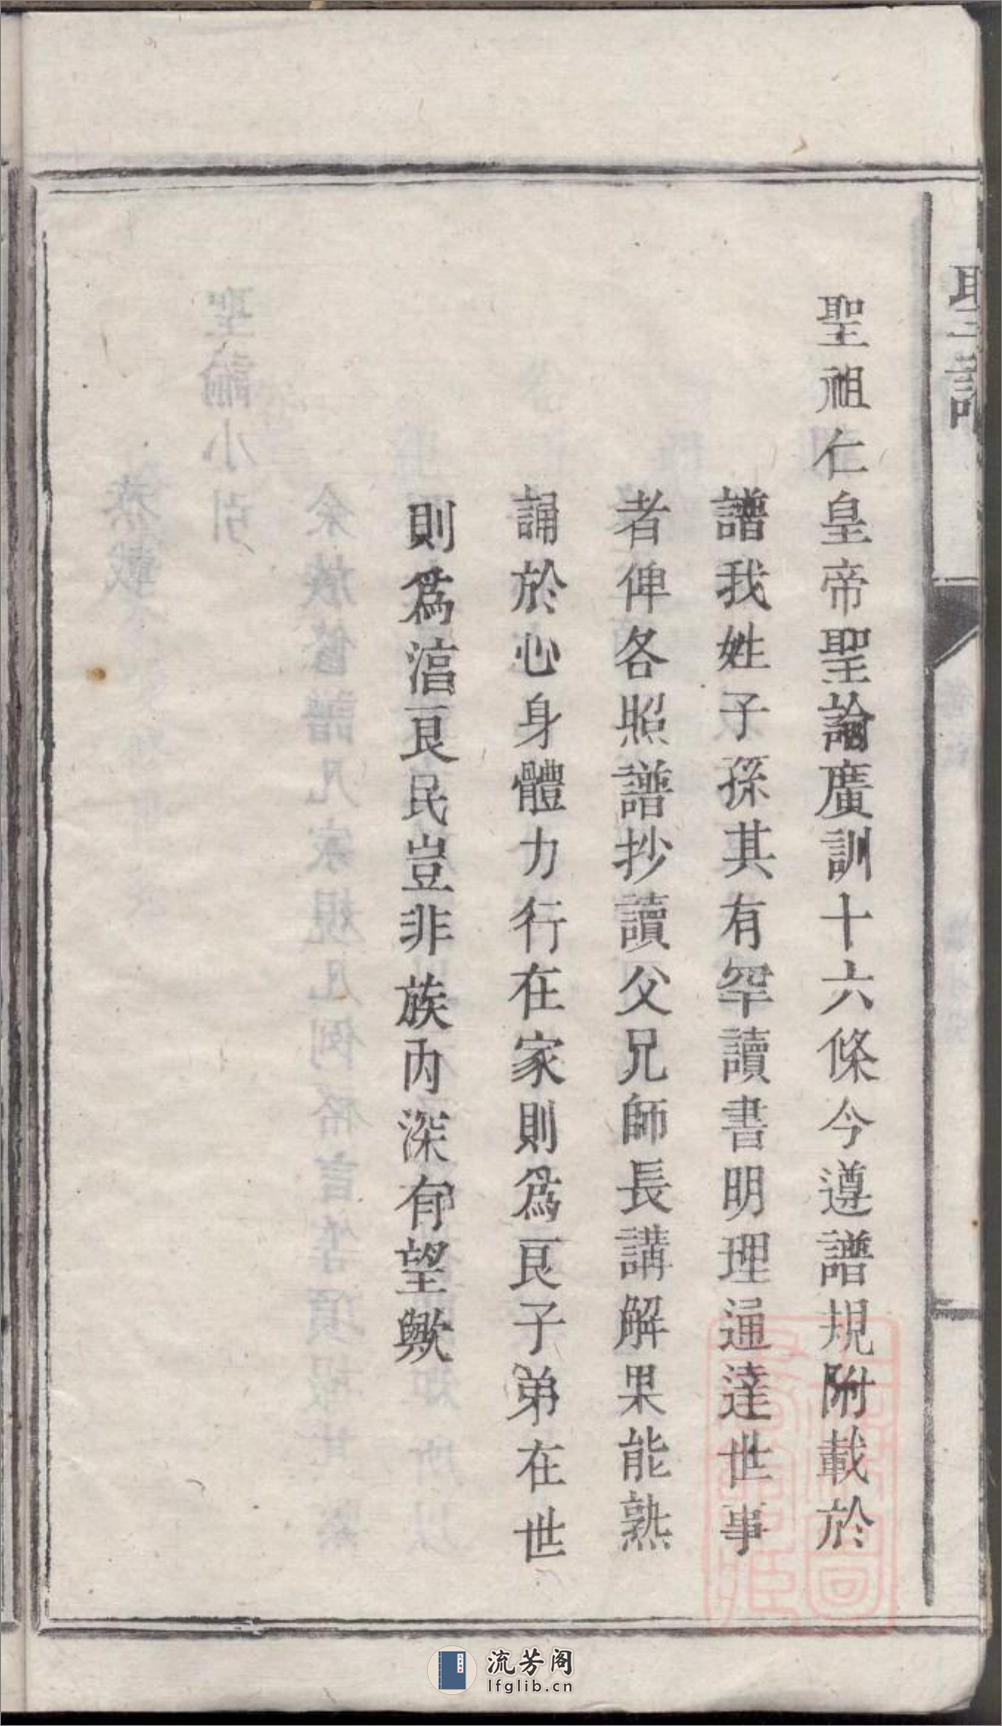 聖祖仁皇帝聖諭廣訓十六條今遵譜規附載於
譜我姓子孫其有罕讀書明理通達世事
者俾各照譜抄讀父兄師長講解果能熟
誦於心身體力行在家則爲良子弟在世
則爲良民豈非族內深有望歟
流芳阁
lfglib.cn